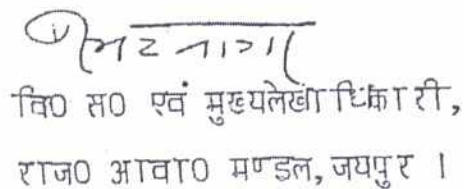 भटनागर
वि0 स0 एवं मुख्यलेखाधिकारी,
राज0 आवा0 मण्डल, जयपुर ।